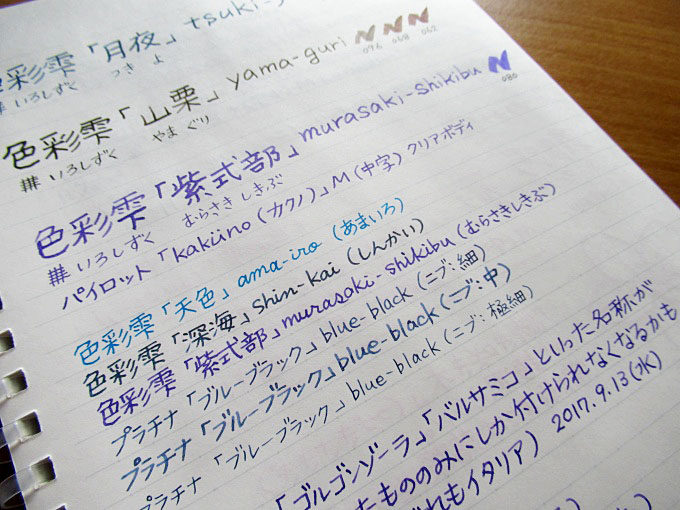 色彩雫「月夜」tsuki-
# いろしずく つき よ
色彩雫「山栗」yama-guri N N N
096 068 062
# いろしずく やま ぐり
色彩雫「紫式部」murasaki-shikibu N
080
# いろしずく むらさき しきぶ
パイロット「kaküno(カクノ)」M(中字)クリアボディ
色彩雫「天色」ama-iro(あまいろ)
色彩雫「深海」shin-kai(しんかい)
色彩雫「紫式部」murasaki-shikibu(むらさきしきぶ)
プラチナ「ブルーブラック」blue-black(ニブ:細)
プラチナ「ブルーブラック」blue-black(ニブ:中)
プラチナ「ブルーブラック」blue-black(ニブ:極細)
「ゴルゴンゾーラ」「バルサミコ」といった名称が
たもののみにしか付けられなくなるかも
れもイタリア) 2017.9.13(水)